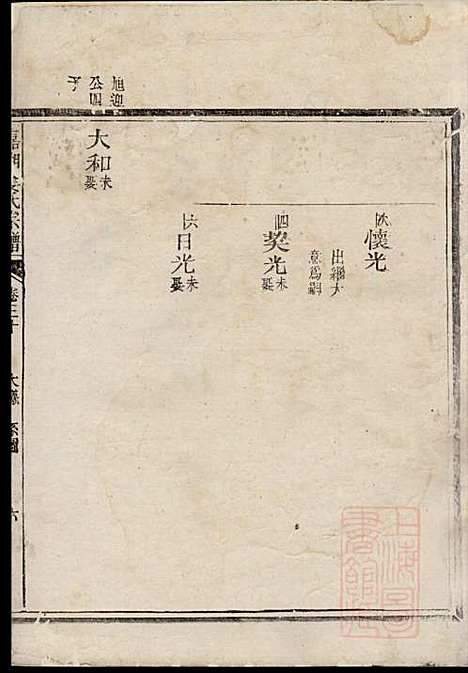 次 懷光
出繼大
意爲嗣
四 奬光 未娶
六 日光 未娶
旭迎
公四
子
大和 未娶
氏宗譜
卷三十
系圖
六
上海圖書館藏